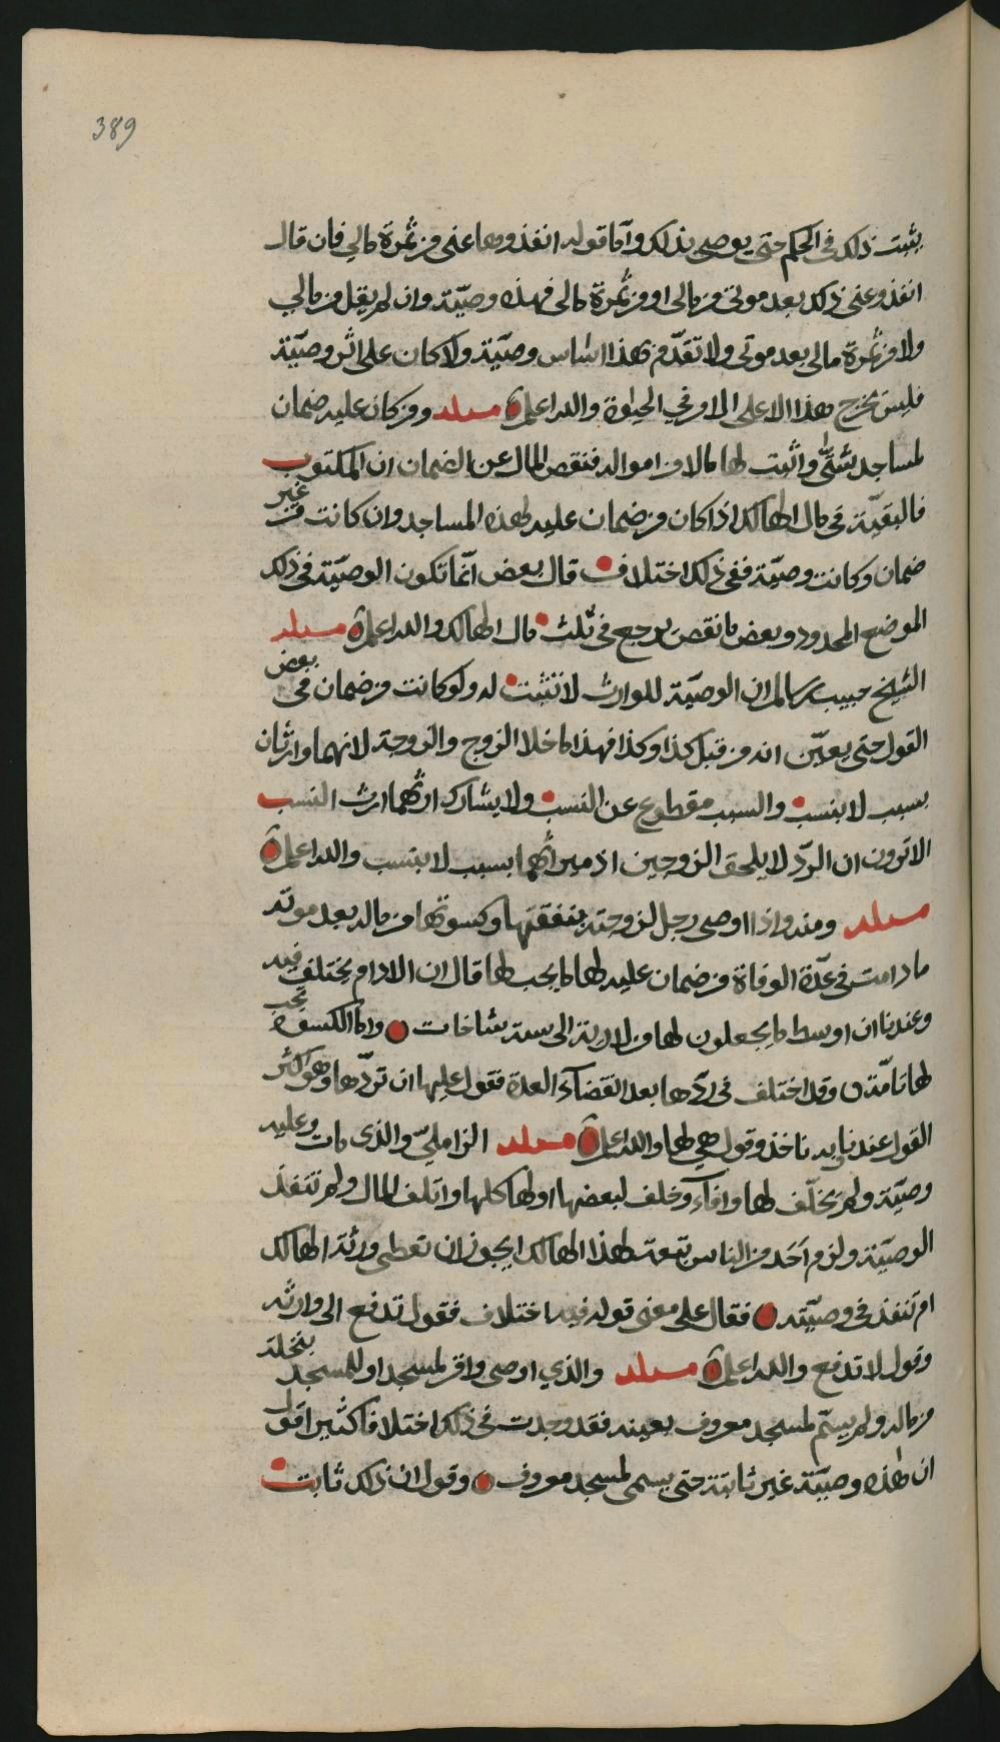 389
يثبت ذلك في الحكم حتى يوصي بذلك واما قوله انفذوها عني من ثمرة مالي فان قال
انفذوا عني ذلك بعد موتي من مالي او من ثمرة مالي فهذه وصيّة وان لم يقل من مالي
ولا من ثمرة مالي بعد موتي ولا تقدّم هذا اساس وصيّة ولا كان على اثر وصيّة
فليس يخرج هذا الا على الامر في الحيوة والله اعلم مسئلة ومن كان عليه ضمان
لمساجد شتّى واثبت لها مالا من امواله فنقص المال عن الضمان ان المكتوب
فالبقيّة في مال الهالك اذا كان من ضمان عليه لهذه المساجد وان كانت من غير
ضمان وكانت وصيّة ففي ذلك اختلاف قال بعض انّما تكون الوصيّة في ذلك
الموضع المحدود وبعض ما نقص يرجع في ثلث مال الهالك والله اعلم مسئلة
الشيخ حبيب بن سالم ان الوصيّة للوارث لا تثبت له ولو كانت من ضمان في بعض
القول حتى يعيّن انه من قبل كذا وكذا فهذا ما خلا الزوج والزوجة لانهما وارثان
بسبب لا بنسب والسبب مقطوع عن النسب ولا يشارك ارثهما ارث النسب
الا ترون ان الردّ لا يلحق الزوجين اذ ميراثهما بسبب لا بنسب والله اعلم
مسئلة ومنه واذا اوصى رجل لزوجته بنفقتها وكسوتها من ماله بعد موته
ما دامت في عدّة الوفاة من ضمان عليه لها ما يجب لها قال ان الادام يختلف فيه
وعندنا ان اوسط ما يجعلون لها من لارية الى ستة شاخات واما الكسوة تجب
لها تامّة وقد اختلف في ردّها بعد انقضاء العدة فقول عليها ان تردّها وهو اكثر
القول عندنا وبه ناخذ وقول هي لها والله اعلم مسئلة الزامليّ والذي مات وعليه
وصيّة ولم يخلّف لها وفاء وخلف لبعضها او لها كلها واتلف المال ولم تنفذ
الوصيّة ولزم احد من الناس تبعة لهذا الهالك ايجوز ان تعطى ورثة الهالك
ام تنفذ في وصيّته فقال على معنى قوله فيه اختلاف فقول تدفع الى وارثه
وقول لا تدفع والله اعلم مسئلة والذي اوصى واقر لمسجد او للمسجد بنخلة
من ماله ولم يسمّ لمسجد معروف بعينه فقد وجدت في ذلك اختلافا كثيرا فقول
ان هذه وصيّة غير ثابتة حتى يسمى لمسجد معروف وقول ان ذلك ثابت